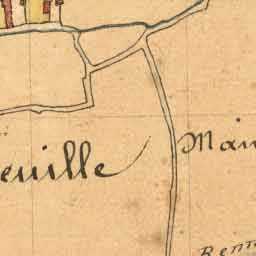 euille
Main
Renn